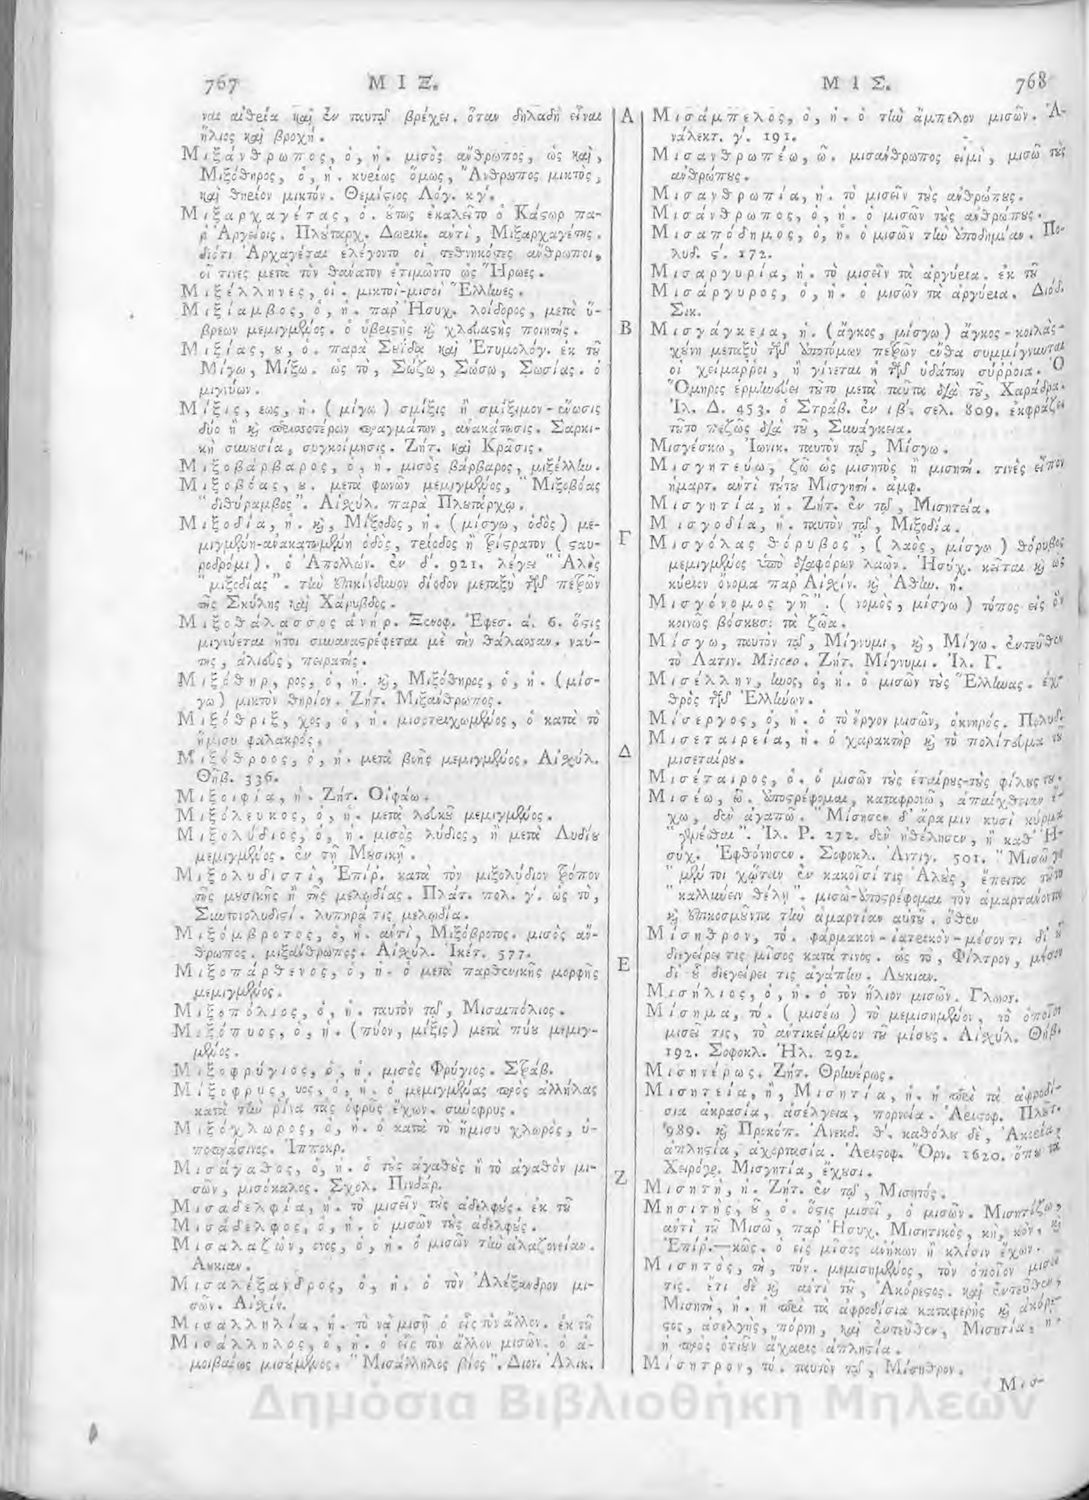 767 ΜΙΞ.
ναι αἰθεία καὶ ἐν ταυτῷ βρέχει. ὅταν δηλαδὴ εἶναι
ἥλιος καὶ βροχή.
Μιξάνθρωπος, ὁ, ἡ. μισὸς ἄνθρωπος, ὡς καὶ,
Μιξόθηρος, ὁ, ἡ. κυρίως ὅμως, Ἄνθρωπος μικτὸς,
καὶ θηρίον μικτόν. Θεμίστιος Λόγ. κγ΄.
Μιξαρχαγέτας, ὁ. οὕτως ἐκαλεῖτο ὁ Κάστωρ πα-
ρ' Ἀργείοις. Πλούταρχ. Δωρικ. αντὶ, Μιξαρχαγέτης.
διότι Ἀρχαγέται ἐλέγοντο οἱ τεθνηκότες ἄνθρωποι,
οἵ τινες μετὰ τὸν θάνατον ἐτιμῶντο ὡς Ἥρωες.
Μιξέλληνες, οἱ. μικτοὶ-μισοὶ Ἕλληνες.
Μιξίαμβος, ὁ, ἡ. παρ' Ἡσυχ. λοίδορος, μετὰ ὕ-
βρεων μεμιγμένος. ὁ ὑβριστὴς καὶ χλευαστὴς ποιητής.
Μιξίας, ου, ὁ. παρὰ Σουΐδα καὶ Ἐτυμολόγ. ἐκ τοῦ
Μίγω, Μίξω. ὡς τὸ, Σώζω, Σώσω, Σωσίας. ὁ
μιγνύων.
Μίξις, εως, ἡ. (μίγω) σμίξις ἢ σμίξιμον-ἕνωσις
δύο ἢ καὶ περισσοτέρων πραγμάτων, ἀνακάτωσις. Σαρκι-
κὴ συνουσία, συγκοίμησις. Ζήτ. καὶ Κρᾶσις.
Μιξοβάρβαρος, ὁ, ἡ. μισὸς βάρβαρος, μιξέλλην.
Μιξοβόας, ου. μετὰ φωνῶν μεμιγμένος, "Μιξοβόας
"διθύραμβος". Αἰσχύλ. παρὰ Πλουτάρχῳ.
Μιξοδία, ἡ. καὶ, Μίξοδος, ἡ. (μίσγω, ὁδὸς) με-
μιγμένη-ἀνακατωμένη ὁδὸς, τρίοδος ἢ τρίστρατον (σταυ-
ροδρόμι). ὁ Ἀπολλών. ἐν δ΄. 921. λέγει "Ἁλὸς
"μιξοδίας". τὴν ἐπικίνδυνον δίοδον μεταξὺ τῶν πετρῶν
τῆς Σκύλης καὶ Χάρυβδος.
Μιξοθάλασσος ἀνήρ. Ξενοφ. Ἐφεσ. ά. 6. ὅστις
μιγνύεται ἤτοι συναναστρέφεται μὲ τὴν θάλασσαν. ναύ-
της, ἁλιεὺς, πειρατής.
Μιξόθηρ, ρος, ὁ, ἡ. καὶ, Μιξόθηρος, ὁ, ἡ. (μίσ-
γω) μικτὸν θηρίον. Ζήτ. Μιξάνθρωπος.
Μιξόθριξ, χος, ὁ, ἡ. μισοτριχωμένος, ὁ κατὰ τὸ
ἥμισυ φαλακρός.
Μιξόθροος, ὁ, ἡ. μετὰ βοῆς μεμιγμένος. Αἰσχύλ.
Θήβ. 336.
Μιξοιφία, ἡ. Ζήτ. Οἰφάω.
Μιξόλευκος, ὁ, ἡ. μετὰ λευκοῦ μεμιγμένος.
Μιξολύδιος, ὁ, ἡ. μισὸς λύδιος, ἢ μετὰ Λυδίου
μεμιγμένος. ἐν τῇ Μουσικῇ.
Μιξολυδιστὶ, Ἐπίρ. κατὰ τὸν μιξολύδιον τρόπον
τῆς μουσικῆς ἢ τῆς μελῳδίας. Πλάτ. πολ. γ΄. ὡς τὸ,
Συντονολυδιστί. λυπηρά τις μελῳδία.
Μιξόμβροτος, ὁ, ἡ. αντὶ, Μιξόβροτος. μισὸς ἄν-
θρωπος. μιξάνθρωπος. Αἰσχύλ. Ἱκέτ. 577.
Μιξοπάρθενος, ὁ, ἡ. ὁ μετὰ παρθενικῆς μορφῆς
μεμιγμένος.
Μιξοπόλιος, ὁ, ἡ. ταυτὸν τῷ, Μισαιπόλιος.
Μιξόπυος, ὁ, ἡ. (πύον, μίξις) μετὰ πύου μεμιγ-
μένος.
Μιξοφρύγιος, ὁ, ἡ. μισὸς Φρύγιος. Στράβ.
Μίξοφρυς, υος, ὁ, ἡ. ὁ μεμιγμένας πρὸς ἀλλήλας
κατὰ τὴν ῥῖνα τὰς ὀφρῦς ἔχων. σύνοφρυς.
Μιξόχλωρος, ὁ, ἡ. ὁ κατὰ τὸ ἥμισυ χλωρὸς, ὑ-
ποπράσινος. Ἱπποκρ.
Μισάγαθος, ὁ, ἡ. ὁ τοὺς ἀγαθοὺς ἢ τὸ ἀγαθὸν μι-
σῶν, μισόκαλος. Σχολ. Πινδάρ.
Μισαδελφία, ἡ. τὸ μισεῖν τοὺς ἀδελφούς. ἐκ τοῦ
Μισάδελφος, ὁ, ἡ. ὁ μισῶν τοὺς ἀδελφούς.
Μισαλαζὼν, ονος, ὁ, ἡ. ὁ μισῶν τὴν ἀλαζονείαν.
Λουκιαν.
Μισαλέξανδρος, ὁ, ἡ. ὁ τὸν Ἀλέξανδρον μι-
σῶν. Αἰσχίν.
Μισαλληλία, ἡ. τὸ νὰ μισῇ ὁ εἷς τὸν ἄλλον. ἐκ τοῦ
Μισάλληλος, ὁ, ἡ. ὁ εἷς τὸν ἄλλον μισῶν. ὁ ἀ-
μοιβαίως μισούμενος. "Μισάλληλος βίος". Διον. Ἁλικ.
Α
Β
Γ
Δ
Ε
Ζ
ΜΙΣ. 768
Μισάμπελος, ὁ, ἡ. ὁ τὴν ἄμπελον μισῶν. Ἀ-
νάλεκτ. γ΄. 191.
Μισανθρωπέω, ῶ. μισάνθρωπος εἰμὶ, μισῶ τοὺς
ἀνθρώπους.
Μισανθρωπία, ἡ. τὸ μισεῖν τοὺς ἀνθρώπους.
Μισάνθρωπος, ὁ, ἡ. ὁ μισῶν τοὺς ἀνθρώπους.
Μισαπόδημος, ὁ, ἡ. ὁ μισῶν τὴν ἀποδημίαν. Πο-
λυδ. ϛ΄. 172.
Μισαργυρία, ἡ. τὸ μισεῖν τὰ ἀργύρια. ἐκ τοῦ
Μισάργυρος, ὁ, ἡ. ὁ μισῶν τὰ ἀργύρια. Διόδ.
Σικ.
Μισγάγκεια, ἡ. (ἄγκος, μίσγω) ἄγκος-κοιλάς-
χούνη μεταξὺ τῶν ἀποτόμων πετρῶν ἔνθα συμμίγνυνται
οἱ χείμαρροι, ἢ γίνεται ἡ τῶν ὑδάτων σύρροια. Ὁ
Ὅμηρος ἑρμηνεύει τοῦτο μετὰ ταῦτα διὰ τοῦ, Χαράδρα.
Ἰλ. Δ. 453. ὁ Στράβ. ἐν ιβ΄. σελ. 809. ἐκφράζει
τοῦτο πεζῶς διὰ τοῦ, Συνάγκεια.
Μισγέσκω, Ἰωνικ. ταυτὸν τῷ, Μίσγω.
Μισγητεύω, ζῶ ὡς μισητὸς ἢ μισητή. τινὲς εἶπον
ἡμαρτ. αντὶ τούτου Μισγητή. ἀμφ.
Μισγητία, ἡ. Ζήτ. ἐν τῷ, Μισητεία.
Μισγοδία, ἡ. ταυτὸν τῷ, Μιξοδία.
Μισγόλας θόρυβος", (λαὸς, μίσγω) θόρυβος
μεμιγμένος ὑπὸ διαφόρων λαῶν. Ἡσύχ. κεῖται καὶ ὡς
κύριον ὄνομα παρ' Αἰσχίν. καὶ Ἀθήν. ή.
Μισγόνομος γῆ". (νομὸς, μίσγω) τόπος εἰς ὃν
κοινῶς βόσκουσι τὰ ζῶα.
Μίσγω, ταυτὸν τῷ, Μίγνυμι, καὶ, Μίγω. ἐντεῦθεν
τὸ Λατιν. Misceo. Ζήτ. Μίγνυμι. Ἰλ. Γ.
Μισέλλην, ηνος, ὁ, ἡ. ὁ μισῶν τοὺς Ἕλληνας. ἐχ-
θρὸς τῶν Ἑλλήνων.
Μίσεργος, ὁ, ἡ. ὁ τὸ ἔργον μισῶν, ὀκνηρός. Πολυδ.
Μισεταιρεία, ἡ. ὁ χαρακτὴρ καὶ τὸ πολίτευμα τοῦ
μισεταίρου.
Μισέταιρος, ὁ. ὁ μισῶν τοὺς ἑταίρους-τοὺς φίλους του.
Μισέω, ῶ. ἀποστρέφομαι, καταφρονῶ, ἀπαίχθειαν ἔ-
χω, δὲν ἀγαπῶ. "Μίσησεν δ' ἄρα μιν κυσὶ κύρμα
"γενέσθαι". Ἰλ. Ρ. 272. δὲν ἠθέλησεν, ἢ καθ' Ἡ-
συχ. Ἐφθόνησεν. Σοφοκλ. Ἀντιγ. 501. "Μισῶ γε
"μέν τοι χὤταν ἐν κακοῖσί τις Ἁλοὺς, ἔπειτα τοῦτο
"καλλύνειν θέλῃ". μισῶ-ἀποστρέφομαι τὸν ἁμαρτάνοντα
καὶ ἐπικοσμοῦντα τὴν ἁμαρτίαν αὑτοῦ. ὅθεν
Μίσηθρον, τό. φάρμακον-ἰατρικὸν-μέσον τι δι' οὗ
διεγείρει τις μῖσος κατά τινος. ὡς τὸ, Φίλτρον, μέσον
δι' οὗ διεγείρει τις ἀγάπην. Λουκιαν.
Μισήλιος, ὁ, ἡ. ὁ τὸν ἥλιον μισῶν. Γλωσσ.
Μίσημα, τό. (μισέω) τὸ μεμισημένον, τὸ ὁποῖον
μισεῖ τις, τὸ αντικείμενον τοῦ μίσους. Αἰσχύλ. Θήβ.
192. Σοφοκλ. Ἠλ. 292.
Μισηνέρως. Ζήτ. Θρηνέρως.
Μισητεία, ἢ, Μισητία, ἡ. ἡ περὶ τὰ ἀφροδί-
σια ἀκρασία, ἀσέλγεια, πορνεία. Ἀριστοφ. Πλοῦτ.
989. καὶ Προκόπ. Ἀνεκδ. θ΄. καθόλου δὲ, Ἀκρασία,
ἀπληστία, ἀχορτασία. Ἀριστοφ. Ὄρν. 1620. ὅπου τὰ
Χειρόγρ. Μισγητία, ἔχουσι.
Μισητὴ, ἡ. Ζήτ. ἐν τῷ, Μισητός.
Μησιτὴς, οῦ, ὁ. ὅστις μισεῖ, ὁ μισῶν. Μισητίζω,
αντὶ τοῦ Μισῶ, παρ' Ἡσυχ. Μισητικὸς, κὴ, κόν. καὶ
Ἐπίρ.—κῶς. ὁ εἰς μῖσος ἀνήκων ἢ κλίσιν ἔχων.
Μισητὸς, τὴ, τόν. μεμισημένος, τὸν ὁποῖον μισεῖ
τις. ἔτι δὲ καὶ αντὶ τοῦ, Ἀκόρεστος. καὶ ἐντεῦθεν,
Μισητὴ, ἡ. ἡ περὶ τὰ ἀφροδίσια καταφερὴς καὶ ἀκόρε-
στος, ἀσελγὴς, πόρνη, καὶ ἐντεῦθεν, Μισητία, ἡ.
ἡ πρὸς ὁτιοῦν ἄχαρις ἀπληστία.
Μίσητρον, τό. ταυτὸν τῷ, Μίσηθρον.
Μισ-
Δημόσια Βιβλιοθήκη Μηλεών